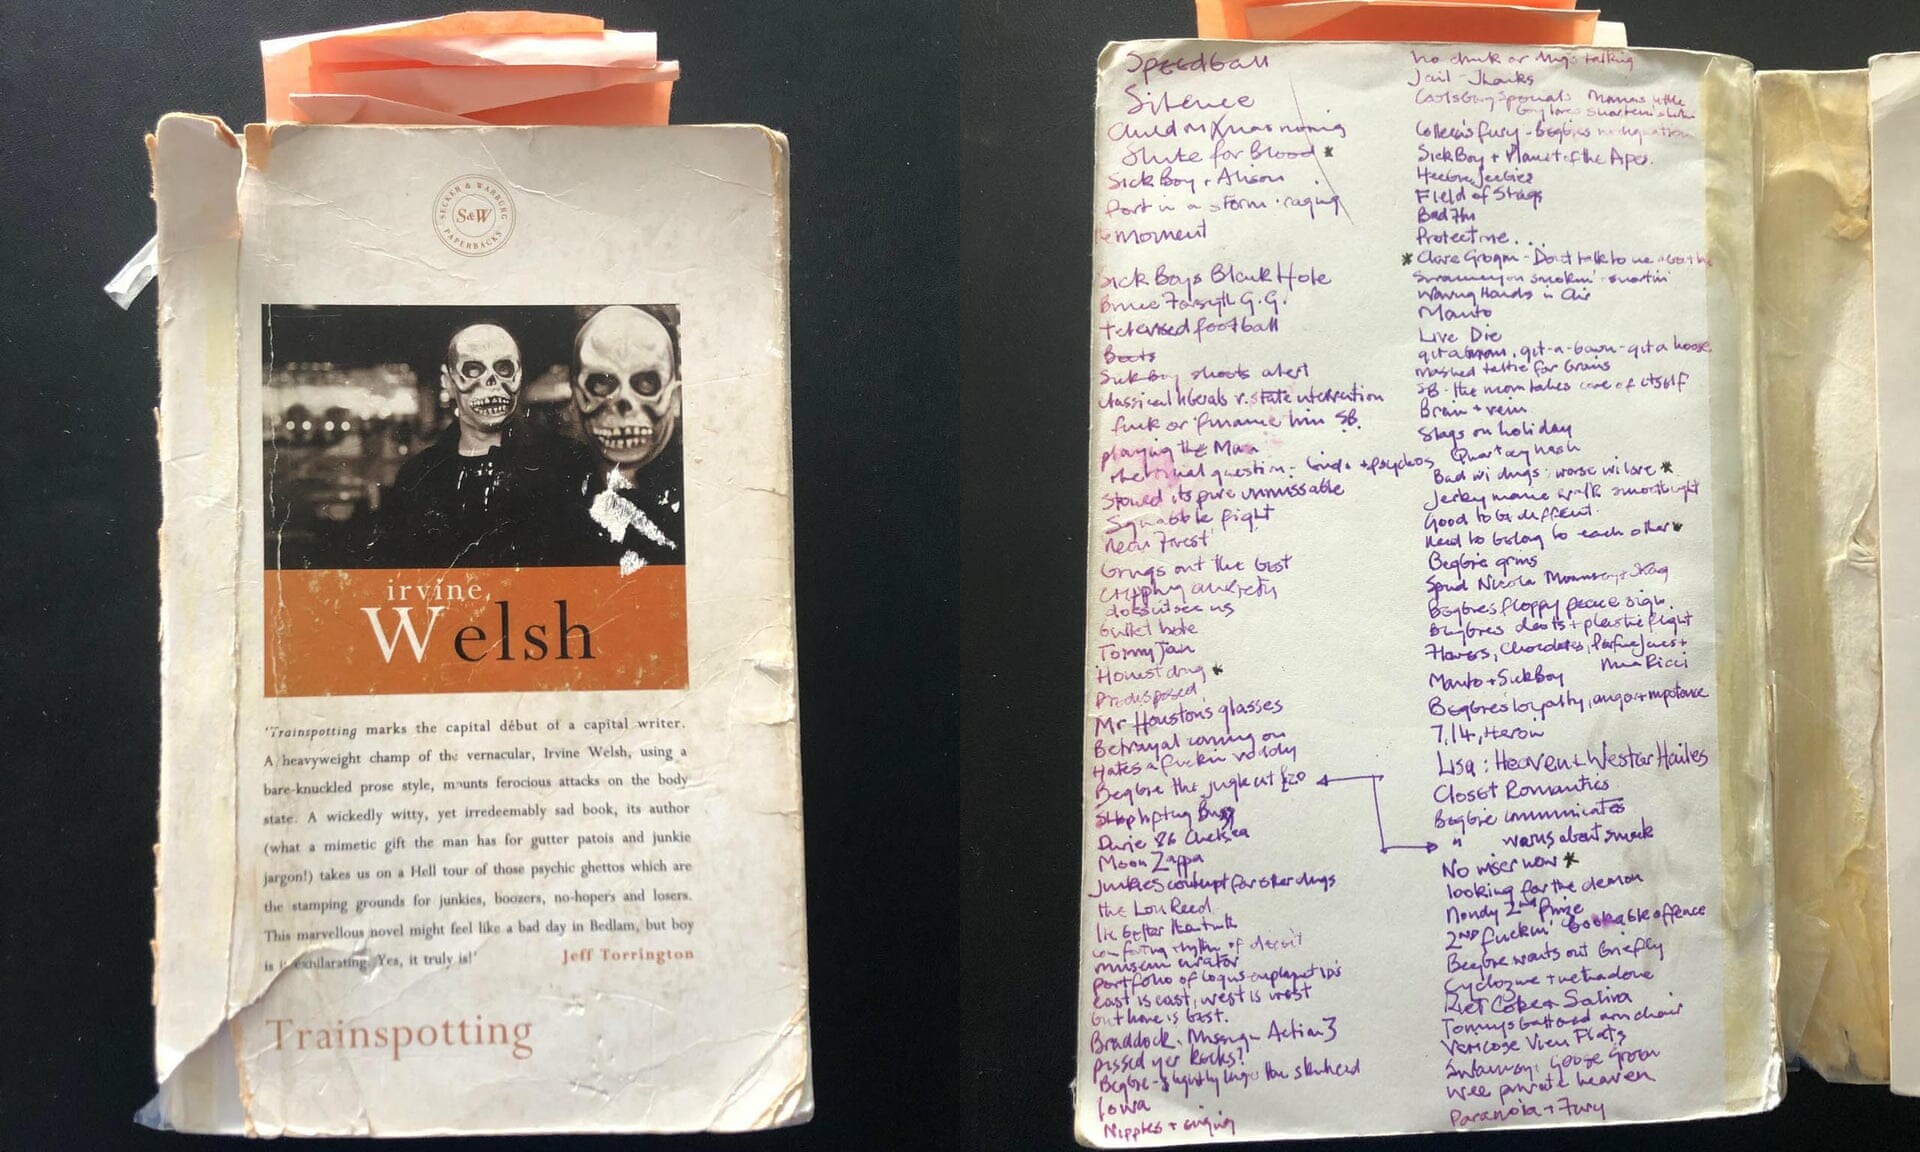 SECKER & WARBURG
S&W
PAPERBACKS
irvine
Welsh
'Trainspotting marks the capital début of a capital writer.
A heavyweight champ of the vernacular, Irvine Welsh, using a
bare-knuckled prose style, mounts ferocious attacks on the body
state. A wickedly witty, yet irredeemably sad book, its author
(what a mimetic gift the man has for gutter patois and junkie
jargon!) takes us on a Hell tour of those psychic ghettos which are
the stamping grounds for junkies, boozers, no-hopers and losers.
This marvellous novel might feel like a bad day in Bedlam, but boy
is it exhilarating. Yes, it truly is!'
Jeff Torrington
Trainspotting
Speedball
Silence
Child on Xmas morning
Shute for Blood *
Sick Boy + Alison
Port in a storm · raging
moment
Sick Boys Black Hole
Bruce Forsyth G.G.
televised football
Boots
Sick Boy shoots alert
Classical liberals v. state intervention
fuck or finance him SB.
playing the Man
rhetorical question - birds + psychos
Stoned its pure unmissable
Squabble fight
Neon Forest
Brings out the best
crippling anxiety
doesn't see us
bullet hole
Tommy Tan
Honest drug *
Predisposed
Mr Houstons glasses
Betrayal coming on
Hates a fuckin
Begbie the jungle cat £20
Stop hitting
Davie 86 Chelsea
Moon Zappa
Junkies contempt for other drugs
the Lou Reed
lie better than truth
comforting rhythm of deceit
museum curator
portfolio of bogus
east is east, west is west
but home is best.
Braddock. Missing in Action 3
pissed yer kecks?
Begbie - slightly longer than skinhead
Iowa
Nipples + singing
no chunk or drugs talking
Jail - Thanks
Specials Mamas little
baby loves
Colleen's fury - Begbies
Sick Boy + Planet of the Apes.
Heebie Jeebies
Field of Stags
Bad
Protect me...
* Clare Grogan - Don't talk to me about love
smokin' - snortin'
Waving Hands in Air
Manto
Live Die
git a hoose
mashed tattie for brains
SB - the morn takes care of itself
Brain + vein
Stags on holiday
Quarter hash
Bad wi drugs: worse wi love *
Jerky manic walk
Good to be different.
Need to belong to each other *
Begbie grins
Spud Nicola
Begbies floppy peace sign.
Begbies darts + plastic fight
Flowers, Chocolates, Perfume
Nina Ricci
Manto + Sick Boy
Begbies loyalty, anger + impotence
7, 14, Heroin
Lisa: Heaven + Wester Hailes
Closet Romantics
Begbie communicates
" warns about smack
No miser now *
looking for the demon
2nd Prize
2ND fuckin' bookable offence
Begbie wants out briefly
Cyclozine + methadone
Diet Coke + Saliva
Tommys battered arm chair
Varicose Vein Flats
Swanney: Goose Green
Wee private heaven
Paranoia + Fury